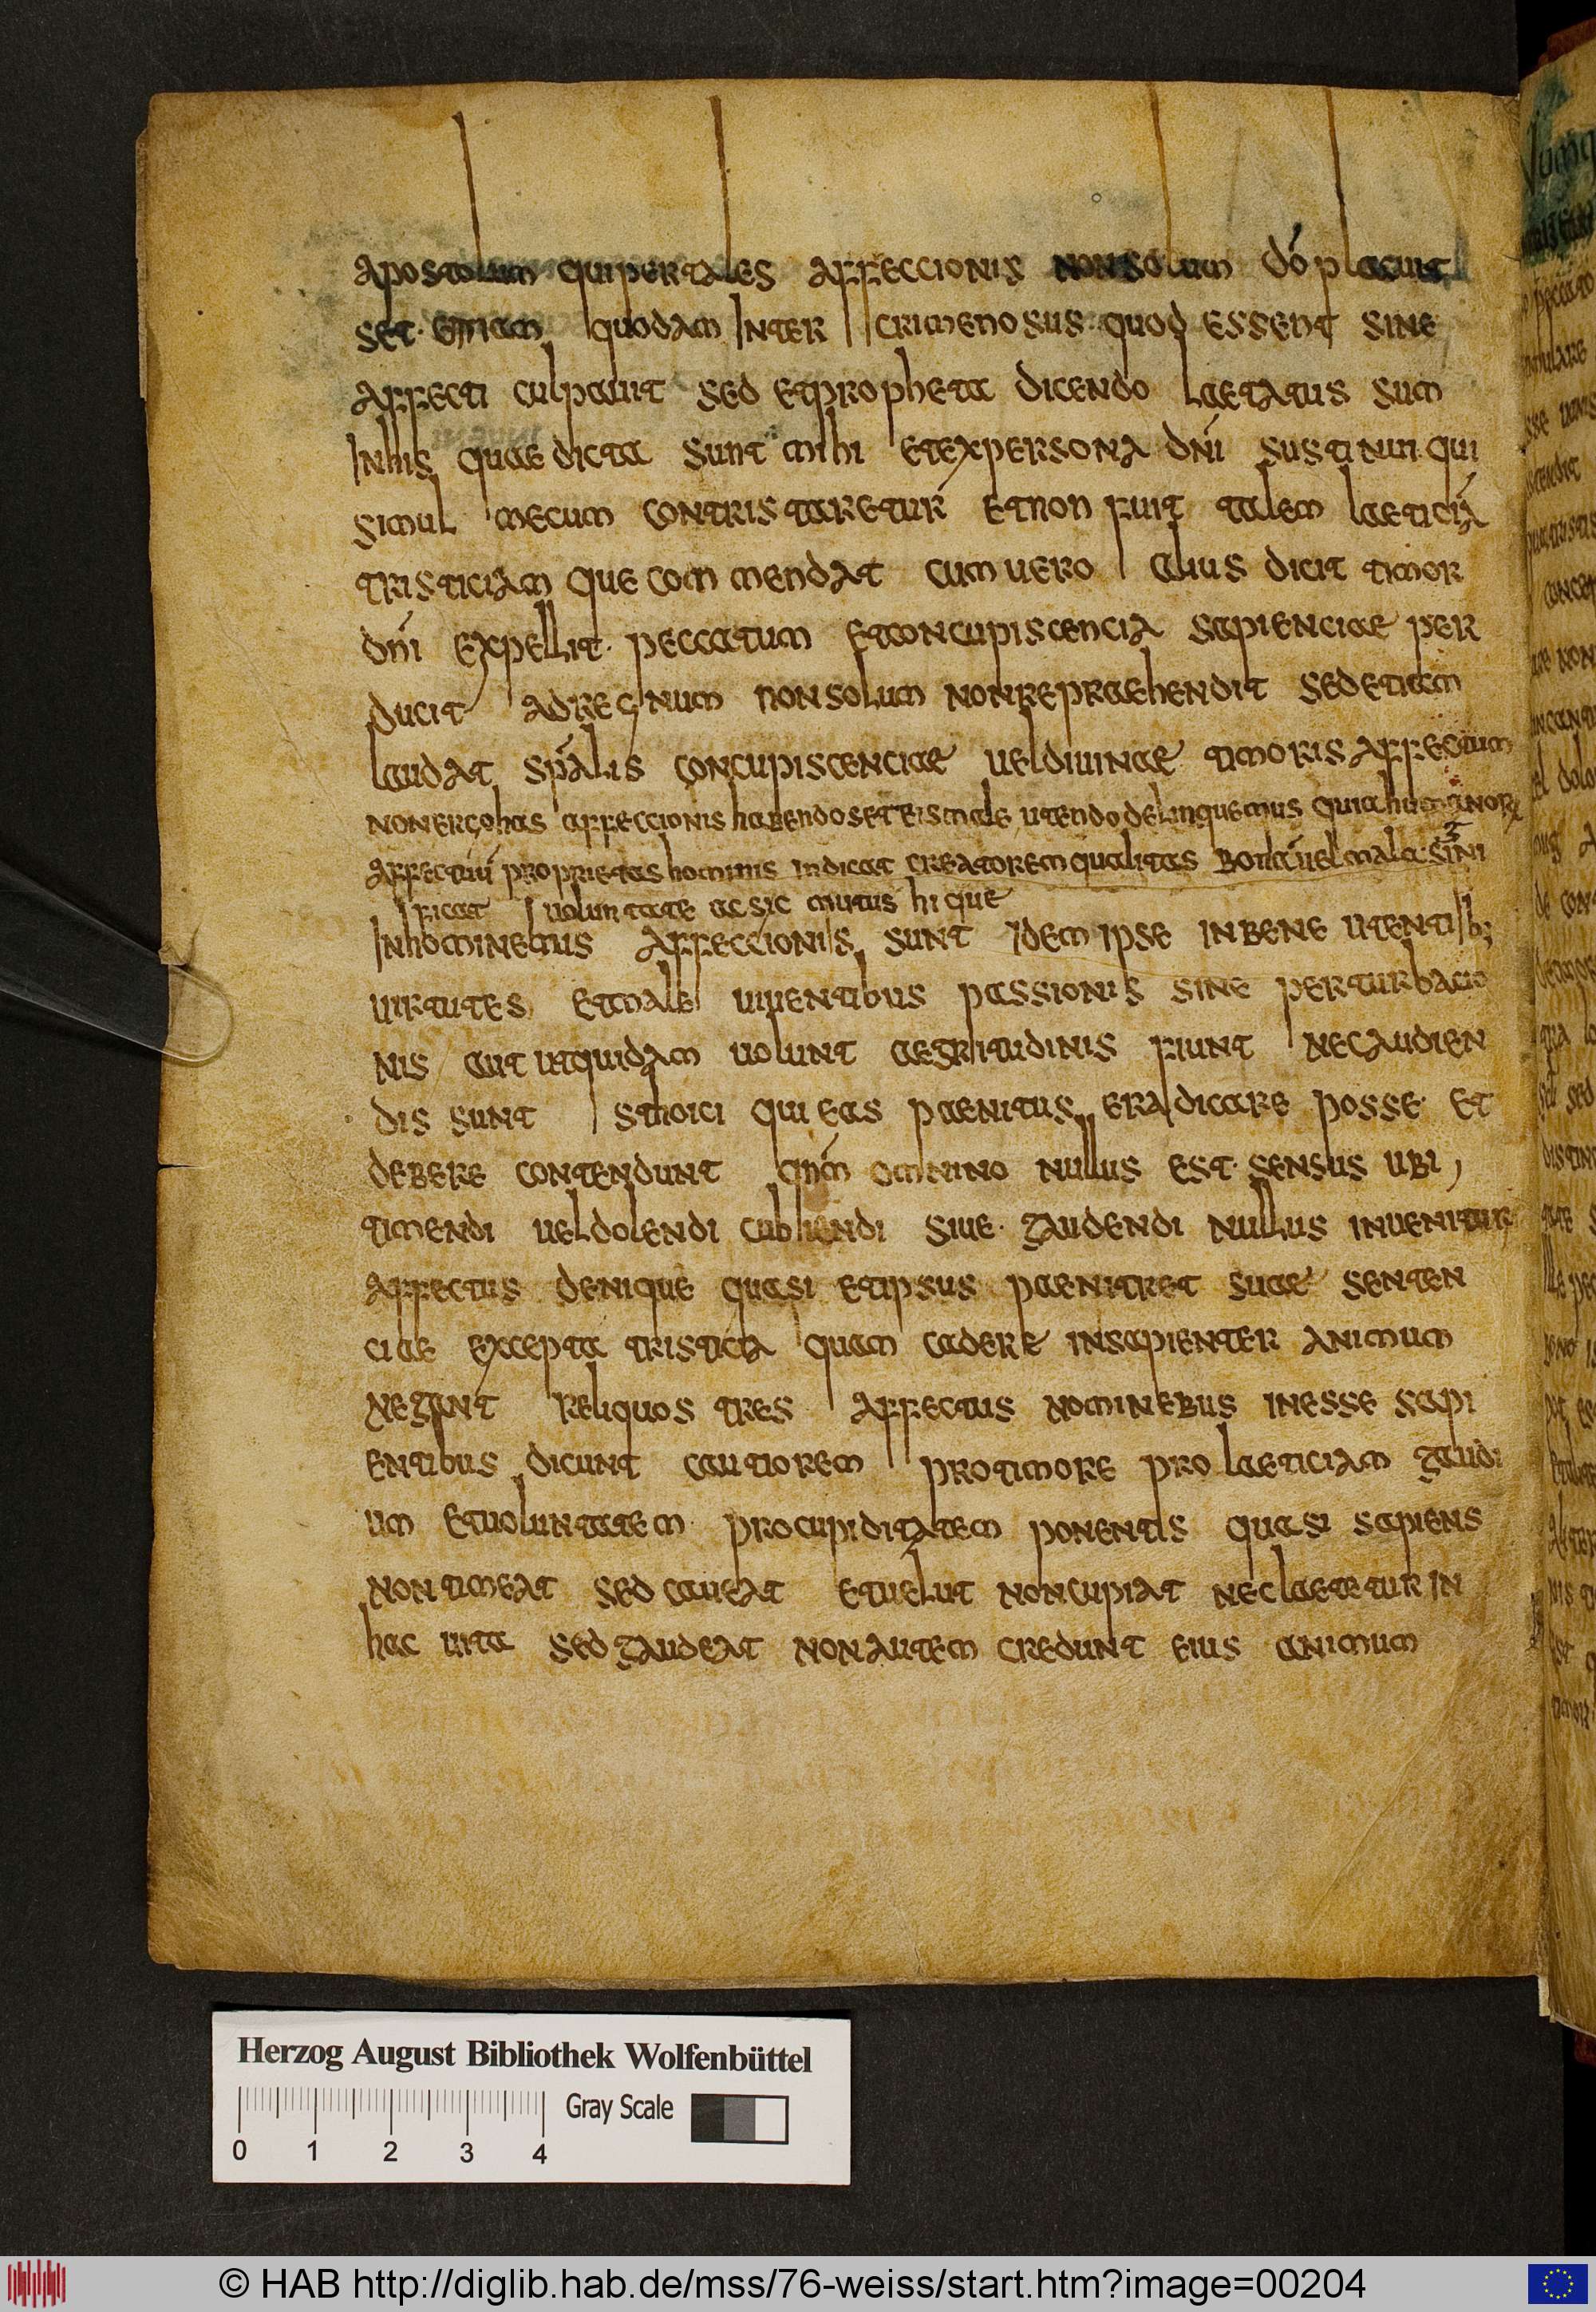 apostolum qui per tales affeccionis non solum dó placuit
set etiam quodam inter crimenosus quod essent sine
affecti culpauit sed et propheta dicendo laetatus sum
In his quae dicta sunt mihi et ex persona dńi sustinui qui
simul mecum contristaretur et non fuit talem laeticiā
tristiciam que commendat cum uero alius dicit timor
dńi expellit peccatum et concupiscencia sapienciae per
ducit ad regnum non solum non repraehendit sed etiam
laudat spālis concupiscenciae uel diuinae timoris affectum
non ergo has affeccionis habendo set eis male utendo delinquemus quia humanor
affectuū proprietas hominis indicat creatorem qualitas bona uel mala signi
ficat uoluntate ac sic motus hi que
In hominebus affeccionis sunt Idem ipse in bene utentib;
uirtutes et male uiuentibus passionis sine perturbacio
nis aut ut quidam uolunt aegritudinis fiunt nec audien
dis sunt sthoici qui eas paenitus eradicare posse et
debere contendunt omnino nullus est sensus ubi
timendi uel dolendi siue gaudendi nullus inuenitur
affectus denique quasi et ipsus paenitret suae senten
ciae excepta tristicia quam cadere in sapienter animum
negant reliquos tres affectus nominebus inesse sapi
entibus dicunt cautiorem pro timore pro laeticiam gaudi
um et uoluntatem pro cupiditatem ponentis quasi sapiens
non timeat sed caueat et uelut non cupiat nec laetetur in
hac uita sed gaudeat non autem credunt eius animum
Herzog August Bibliothek Wolfenbüttel
Gray Scale
0 1 2 3 4
© HAB http://diglib.hab.de/mss/76-weiss/start.htm?image=00204